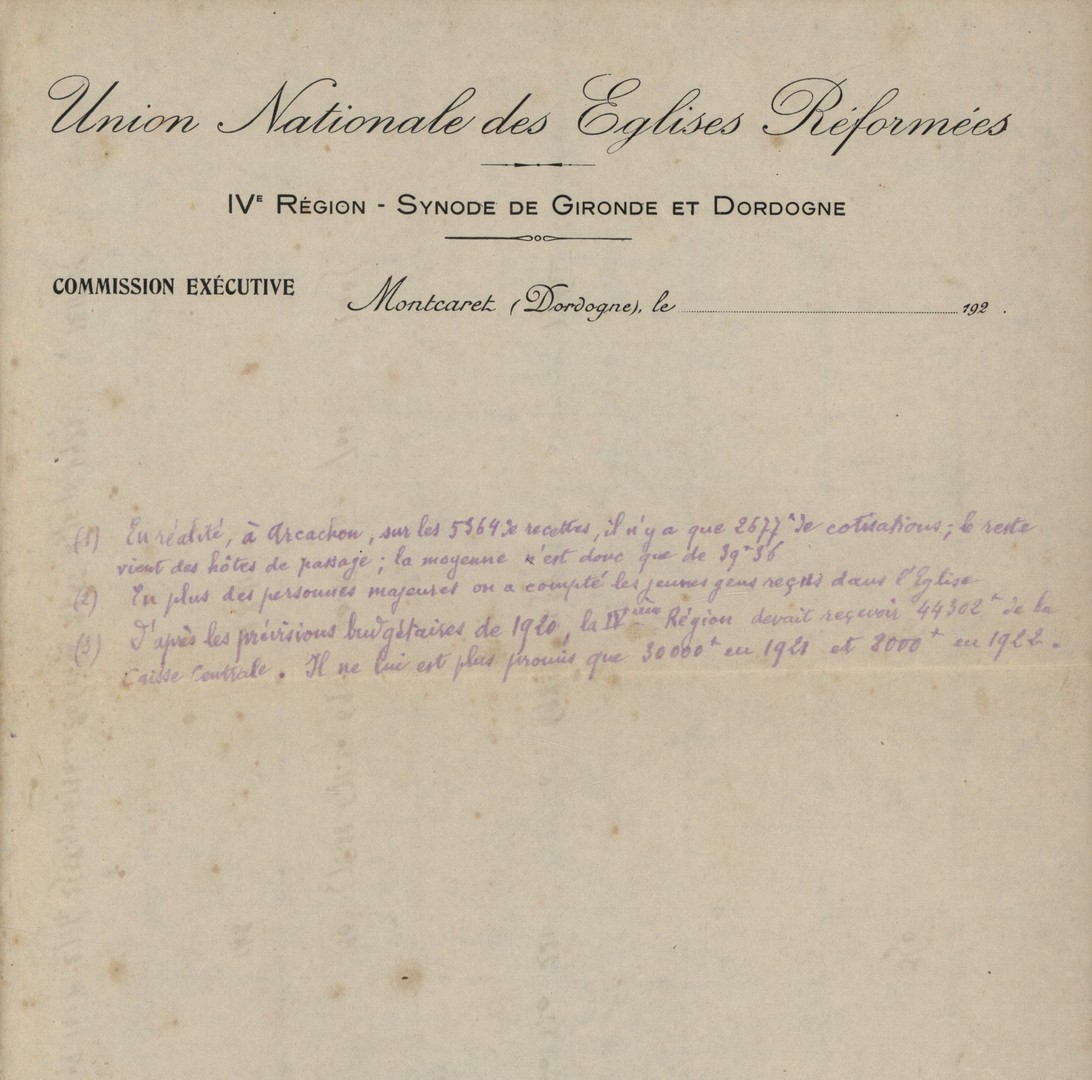 Union Nationale des Eglises Réformées
IVE RÉGION - SYNODE DE GIRONDE ET DORDOGNE
COMMISSION EXÉCUTIVE
Montcaret (Dordogne), le 192 .
(1) En réalité, à Arcachon, sur les 5364 de recettes, il n'y a que 2677f de cotisations; le reste
vient des hôtes de passage; la moyenne n'est donc que de 39f36
(2) En plus des personnes majeures on a compté les jeunes gens reçus dans l'Eglise
(3) D'après les prévisions budgétaires de 1920, la IVème Région devait reçevoir 44302f de la
Caisse Centrale. Il ne lui est plus promis que 30000f en 1921 et 8000f en 1922.